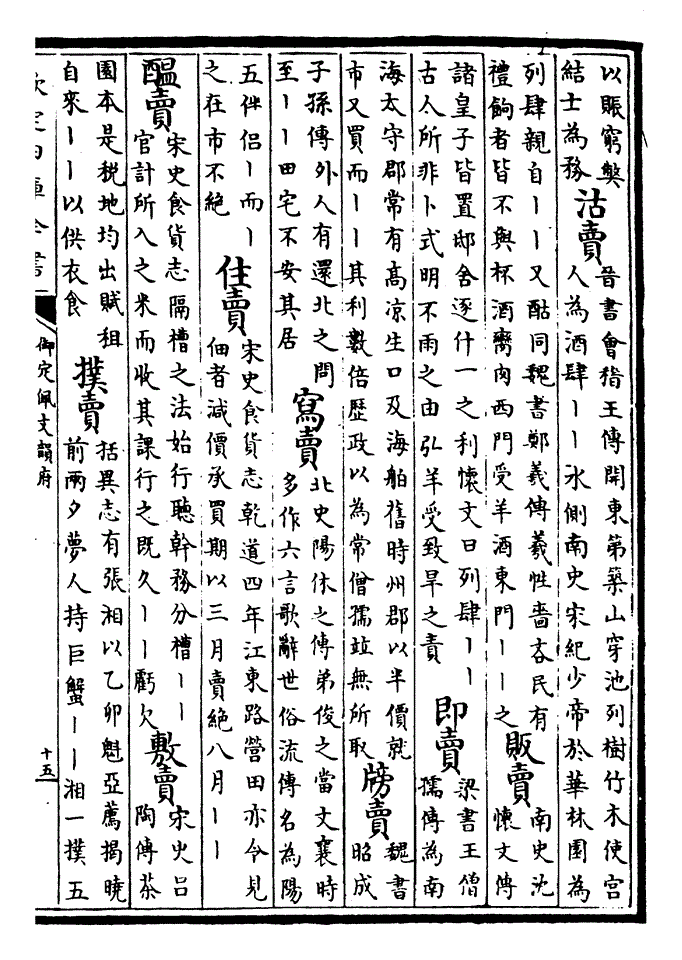 以賑窮檠
結士為務
沽賣
晉書會稽王傳開東第築山穿池列樹竹木使宮
人為酒肆丨丨水側南史宋紀少帝於華林園為
列肆親自丨丨又酤同魏書鄭羲傳羲性嗇吝民有
禮餉者皆不與杯酒臠肉西門受羊酒東門丨丨之
販賣
南史沈
懷文傳
諸皇子皆置邸舍逐什一之利懷文曰列肆丨丨
古人所非卜式明不雨之由弘羊受致旱之責
即賣
梁書王僧
孺傳為南
海太守郡常有高涼生口及海舶舊時州郡以半價就
市又買而丨丨其利數倍歷政以為常僧孺竝無所取
牓賣
魏書
昭成
子孫傳外人有還北之問
至丨丨田宅不安其居
寫賣
北史陽休之傳弟俊之當文襄時
多作六言歌辭世俗流傳名為陽
五伴侶丨而丨
之在市不絕
住賣
宋史食貨志乾道四年江東路營田亦令見
佃者減價承買期以三月賣絕八月丨丨
醖賣
宋史食貨志隔槽之法始行聽幹務分槽丨丨
官計所入之米而收其課行之既久丨丨虧欠
敷賣
宋史呂
陶傳茶
園本是税地均出賦租
自來丨丨以供衣食
撲賣
括異志有張湘以乙卯魁亞薦揭曉
前兩夕夢人持巨蟹丨丨湘一撲五
欽定四庫全書
御定佩文韻府
十五